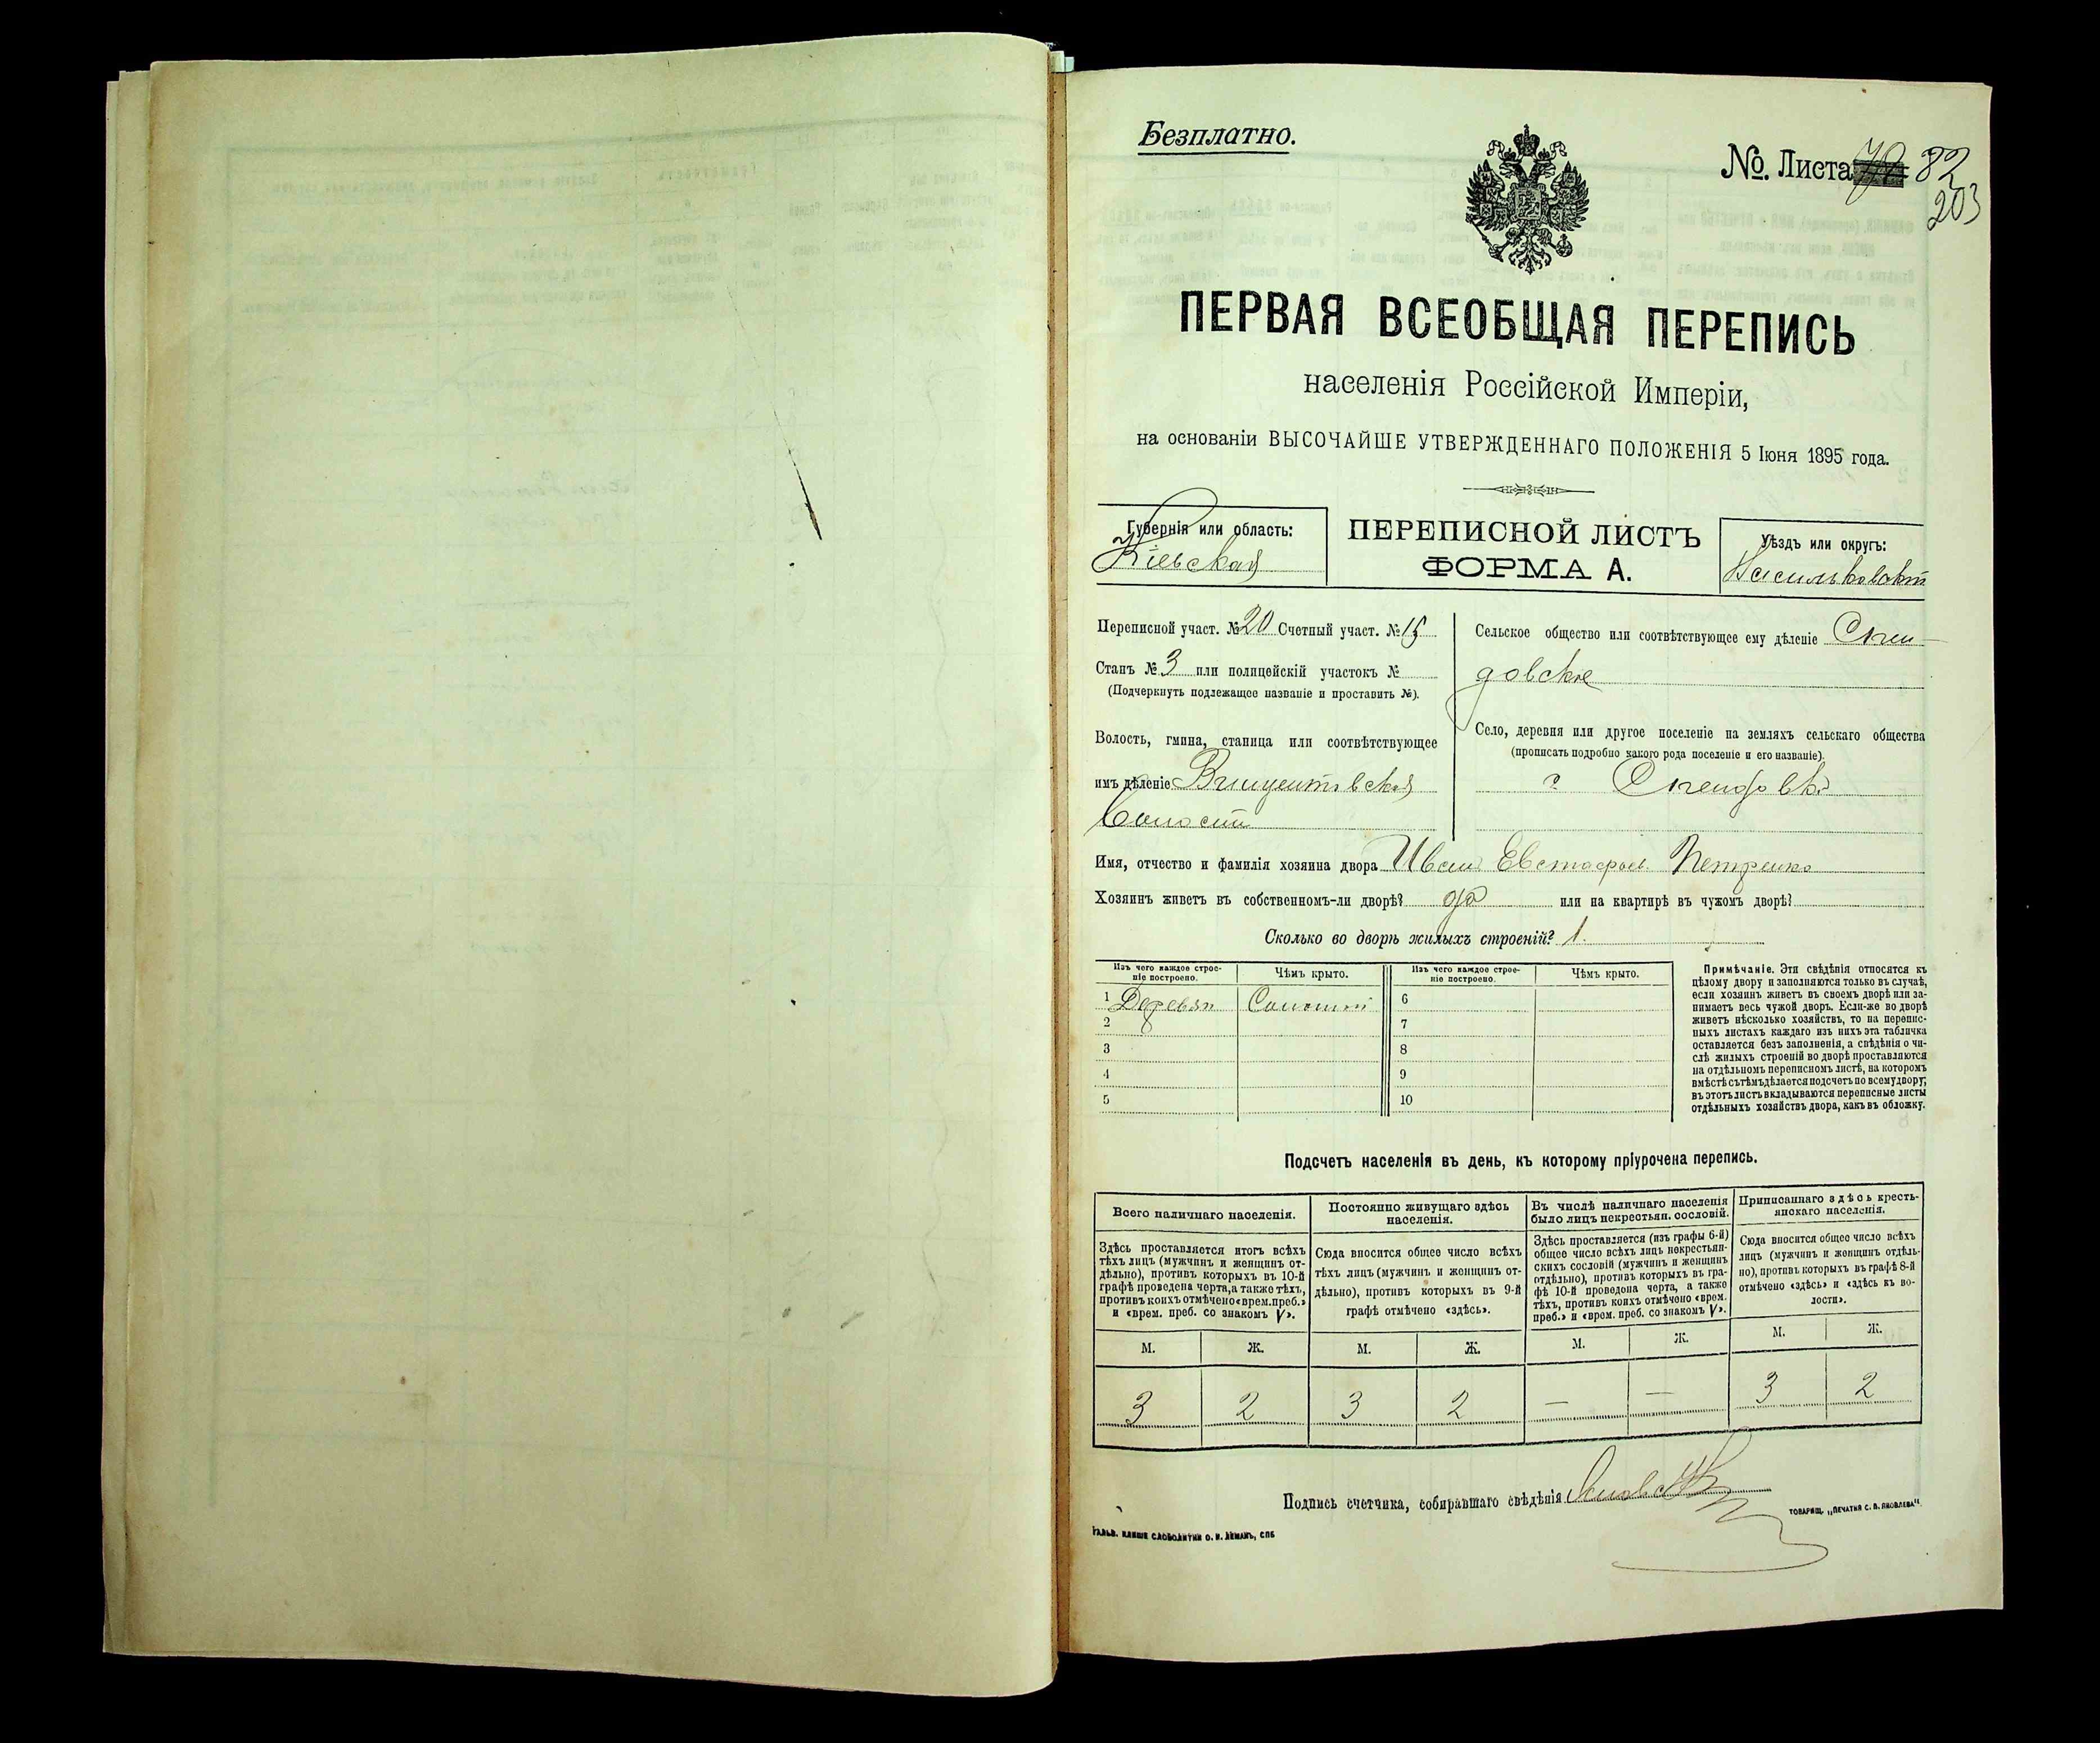 Безплатно.
№. Листа 82
203
ПЕРВАЯ ВСЕОБЩАЯ ПЕРЕПИСЬ
населенія Россійской Имперіи,
на основаніи ВЫСОЧАЙШЕ УТВЕРЖДЕННАГО ПОЛОЖЕНІЯ 5 Іюня 1895 года.
Губернія или область:
Кіевская
ПЕРЕПИСНОЙ ЛИСТЪ
ФОРМА А.
Уѣздъ или округъ:
Переписной участ. № 20 Счетный участ. № 15
Станъ № 3 или полицейскій участокъ №
(Подчеркнуть подлежащее названіе и проставить №).
Волость, гмина, станица или соотвѣтствующее
имъ дѣленіе
Сельское общество или соотвѣтствующее ему дѣленіе
довское
Село, деревня или другое поселеніе на земляхъ сельскаго общества
(прописать подробно какого рода поселеніе и его названіе).
Имя, отчество и фамилія хозяина двора Иван Евстафьев Петренко
Хозяинъ живетъ въ собственномъ-ли дворѣ? да или на квартирѣ въ чужомъ дворѣ?
Сколько во дворѣ жилыхъ строеній? 1.
Изъ чего каждое строе-
ніе построено.
Чѣмъ крыто.
Изъ чего каждое строе-
ніе построено.
Чѣмъ крыто.
1 Деревян Соломой 6
2 7
3 8
4 9
5 10
Примѣчаніе. Эти свѣдѣнія относятся къ
цѣлому двору и заполняются только въ случаѣ,
если хозяинъ живетъ въ своемъ дворѣ или за-
нимаетъ весь чужой дворъ. Если-же во дворѣ
живетъ нѣсколько хозяйствъ, то на перепис-
ныхъ листахъ каждаго изъ нихъ эта табличка
оставляется безъ заполненія, а свѣдѣнія о чи-
слѣ жилыхъ строеній во дворѣ проставляются
на отдѣльномъ переписномъ листѣ, на которомъ
вмѣстѣ съ тѣмъ дѣлается подсчетъ по всему двору;
въ этотъ листъ вкладываются переписные листы
отдѣльныхъ хозяйствъ двора, какъ въ обложку.
Подсчетъ населенія въ день, къ которому пріурочена перепись.
Всего наличнаго населенія.
Здѣсь проставляется итогъ всѣхъ
тѣхъ лицъ (мужчинъ и женщинъ от-
дѣльно), противъ которыхъ въ 10-й
графѣ проведена черта, а также тѣхъ,
противъ коихъ отмѣчено «врем. преб.»
и «врем. преб. со знакомъ V».
Постоянно живущаго здѣсь
населенія.
Сюда вносится общее число всѣхъ
тѣхъ лицъ (мужчинъ и женщинъ от-
дѣльно), противъ которыхъ въ 9-й
графѣ отмѣчено «здѣсь».
Въ числѣ наличнаго населенія
было лицъ некрестьян. сословій.
Здѣсь проставляется (изъ графы 6-й)
общее число всѣхъ лицъ некрестьян-
скихъ сословій (мужчинъ и женщинъ
отдѣльно), противъ которыхъ въ гра-
фѣ 10-й проведена черта, а также
тѣхъ, противъ коихъ отмѣчено «врем.
преб.» и «врем. преб. со знакомъ V».
Приписаннаго здѣсь кресть-
янскаго населенія.
Сюда вносится общее число всѣхъ
лицъ (мужчинъ и женщинъ отдѣль-
но), противъ которыхъ въ графѣ 8-й
отмѣчено «здѣсь» и «здѣсь къ во-
лости».
М. Ж. М. Ж. М. Ж. М. Ж.
3 2 3 2 — — 3 2
Подпись счетчика, собиравшаго свѣдѣнія
ГАЛЬВ. КЛИШЕ СЛОВОЛИТНИ О. И. ЛЕМАНЪ, СПБ
ТОВАРИЩ. „ПЕЧАТНЯ С. П. ЯКОВЛЕВА"